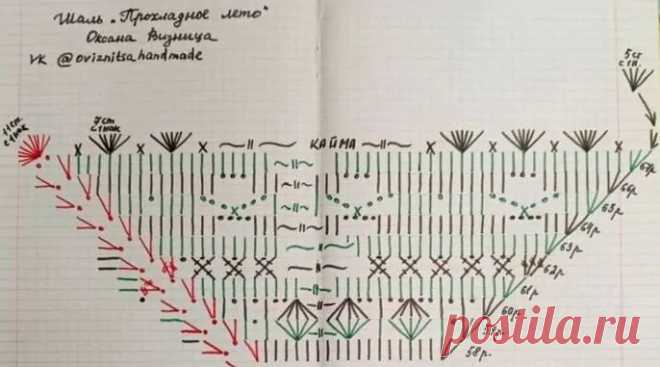 Шаль „Прохладное лето"
Оксана Визница
VK @oviznitsa_handmade
5 ст
с 1 н.
11 ст.
с 1 нак
7 ст
с 1 нак
КАЙМА
67р.
66р.
65р.
64р.
63р.
62р.
61р.
60р.
59р.
58р.
postila.ru